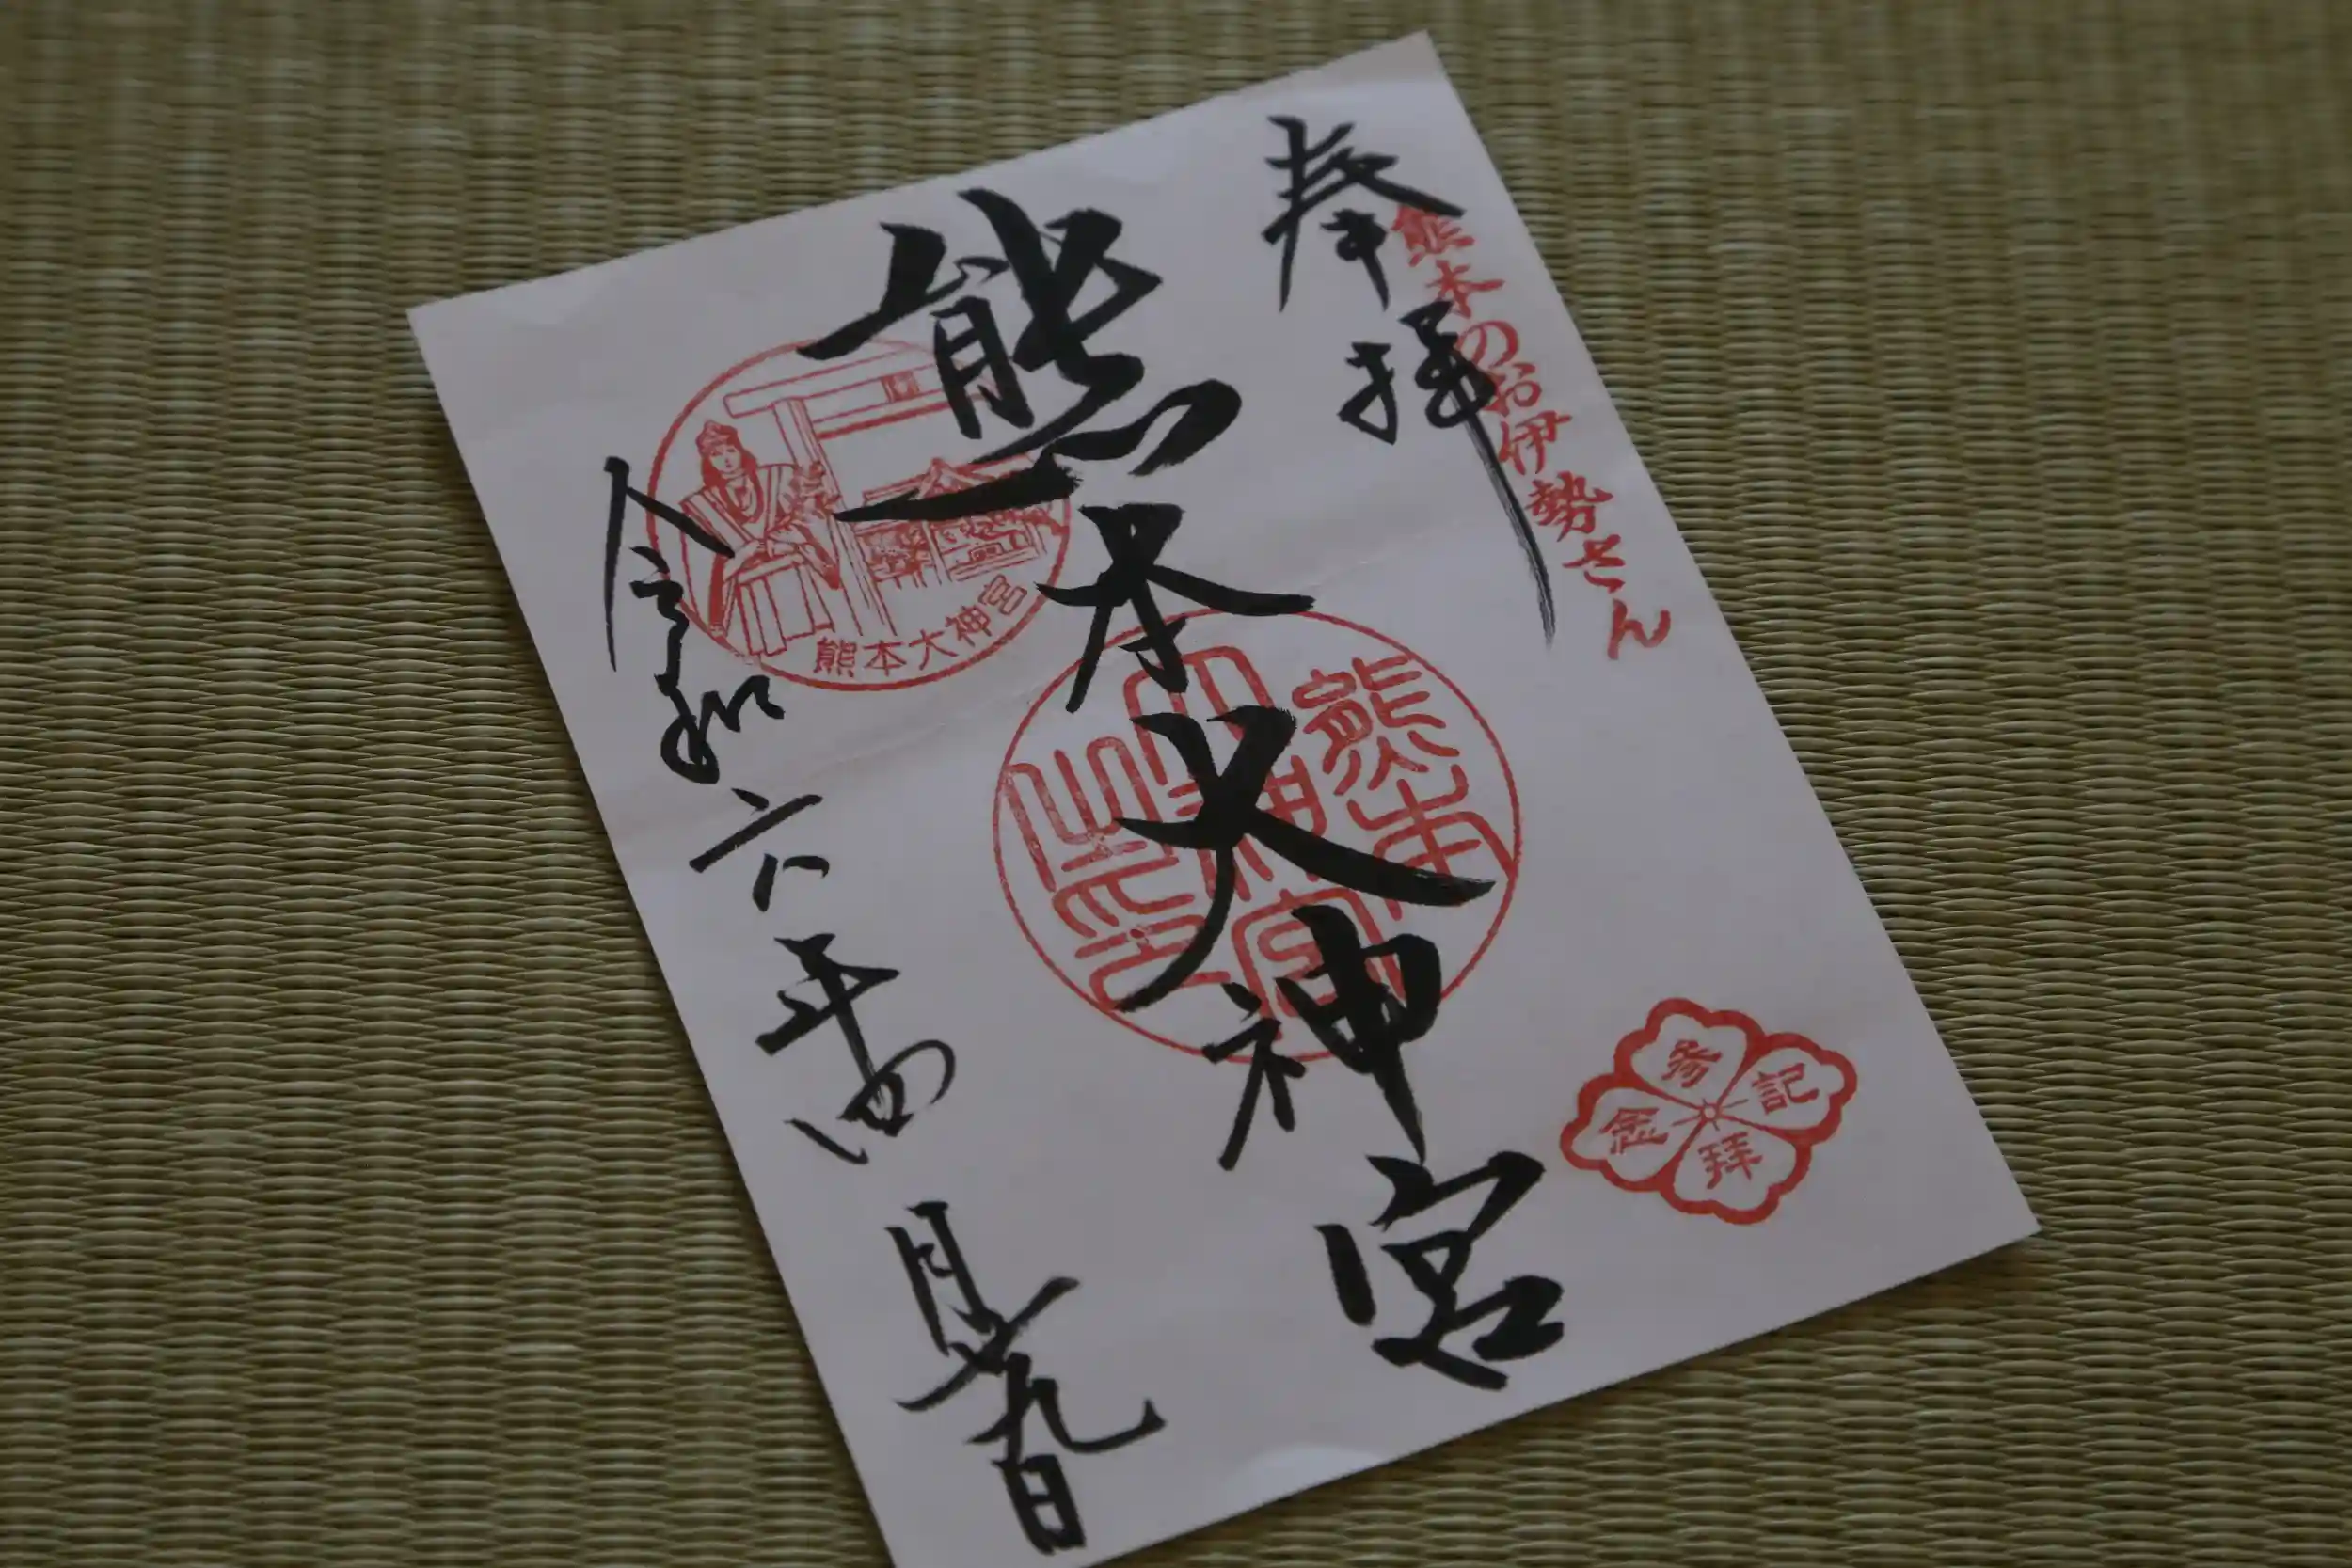 熊本のお伊勢さん
奉拝
熊本大神宮
令和六年四月十九日
熊本大神宮
熊本
大神宮
之印
参拝
記念